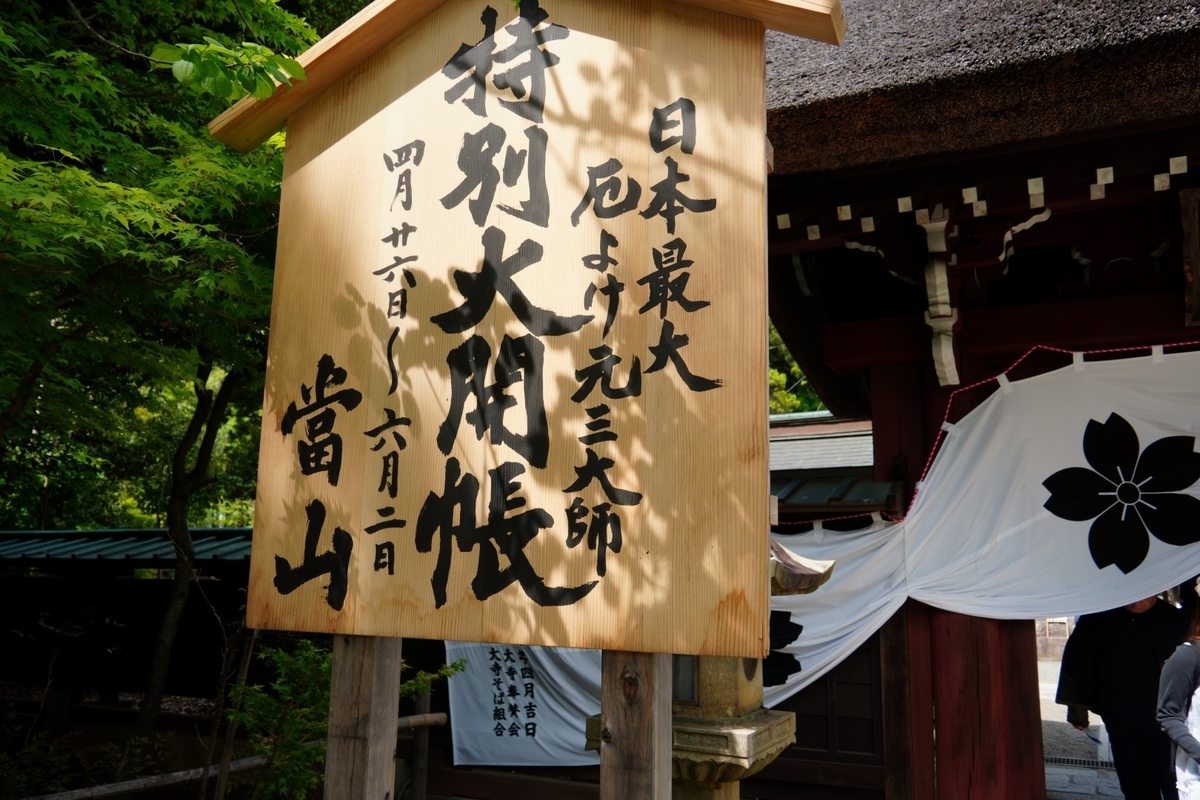 日本最大
厄よけ元三大師
特別大開帳
四月廿六日〜六月二日
當山
年四月吉日
大寺奉賛会
大寺そば組合